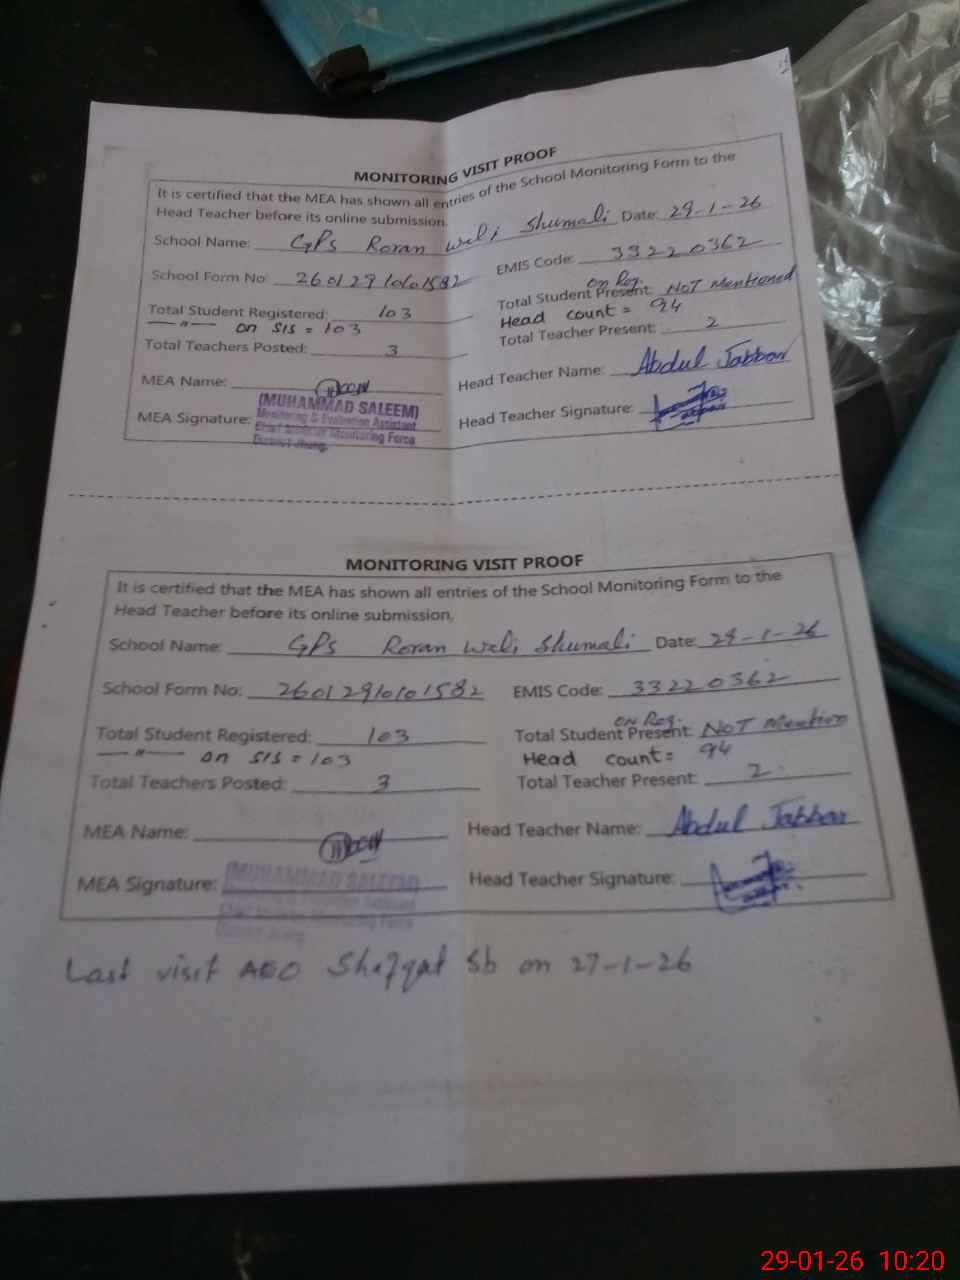 MONITORING VISIT PROOF
It is certified that the MEA has shown all entries of the School Monitoring Form to the
Head Teacher before its online submission.
School Name: GPS Roran wali Shumali Date: 29-1-26
School Form No: 26012910101582 EMIS Code: 33220362
on Reg.
Total Student Registered: 103 Total Student Present: NOT Mentioned
—"— on SIS = 103 Head count = 94
Total Teachers Posted: 3 Total Teacher Present: 2
MEA Name: Head Teacher Name: Abdul Jabbar
MEA Signature: Head Teacher Signature:
(MUHAMMAD SALEEM)
Monitoring & Evaluation Assistant
Chief Minister Monitoring Force
District Jhang.
MONITORING VISIT PROOF
It is certified that the MEA has shown all entries of the School Monitoring Form to the
Head Teacher before its online submission.
School Name: GPS Roran wali Shumali Date: 29-1-26
School Form No: 26012910101582 EMIS Code: 33220362
ON Reg.
Total Student Registered: 103 Total Student Present: NOT Mention
—"— on SIS = 103 Head count = 94
Total Teachers Posted: 3 Total Teacher Present: 2
MEA Name: Head Teacher Name: Abdul Jabbar
MEA Signature: Head Teacher Signature:
(MUHAMMAD SALEEM)
Monitoring & Evaluation Assistant
Chief Minister Monitoring Force
District Jhang.
Last visit AEO Shafqat Sb on 27-1-26
29-01-26 10:20